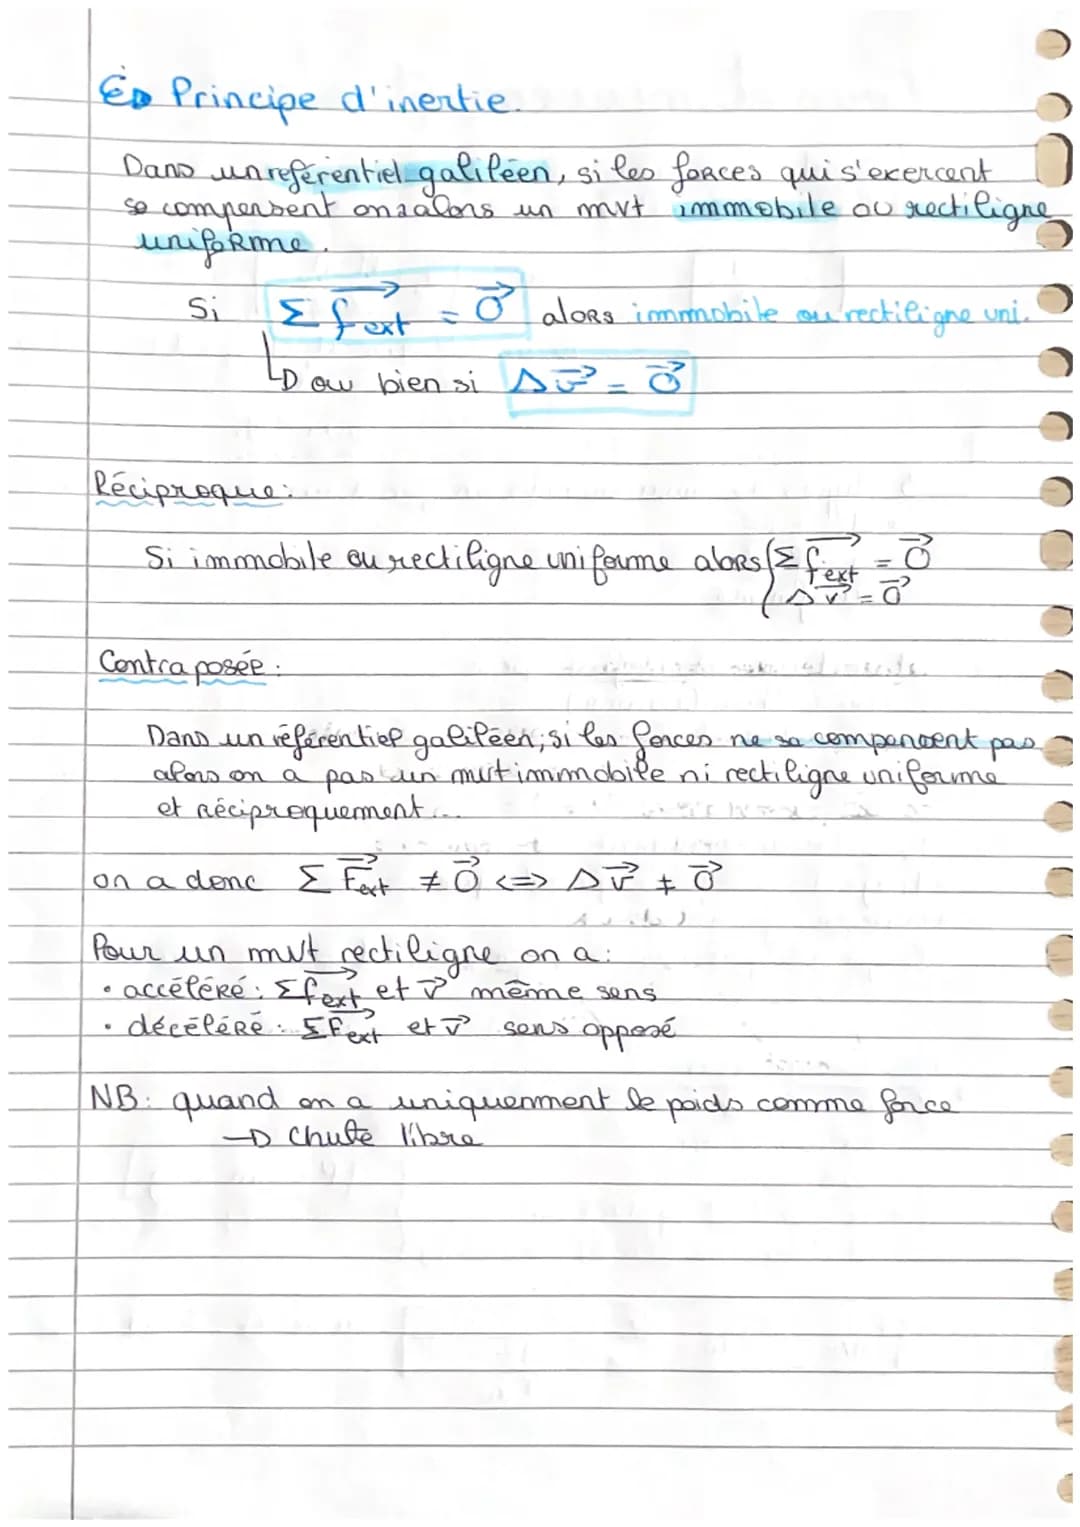 Principe d'inertie.
Dans un reférentiel galiléen, si les forces qui s'exercent
se compensent on a alors un mvt immobile ou rectiligne
uniforme.
Si Σ f ext = 0 alors immobile ou rectiligne uni.
ou bien si Δv = 0
Réciproque:
Si immobile ou rectiligne uniforme alors { Σ f ext = 0
Δv = 0
Contraposée:
Dans un référentiel galiléen; si les forces ne se compensent pas
alors on a pas un mvt immobile ni rectiligne uniforme
et réciproquement...
on a donc Σ Fext ≠ 0 <=> Δv ≠ 0
Pour un mvt rectiligne on a:
• accéléré: Σfext et v même sens
• décéléré: ΣFext et v sens opposé
NB: quand on a uniquenment le poids comme force
→ chute libre